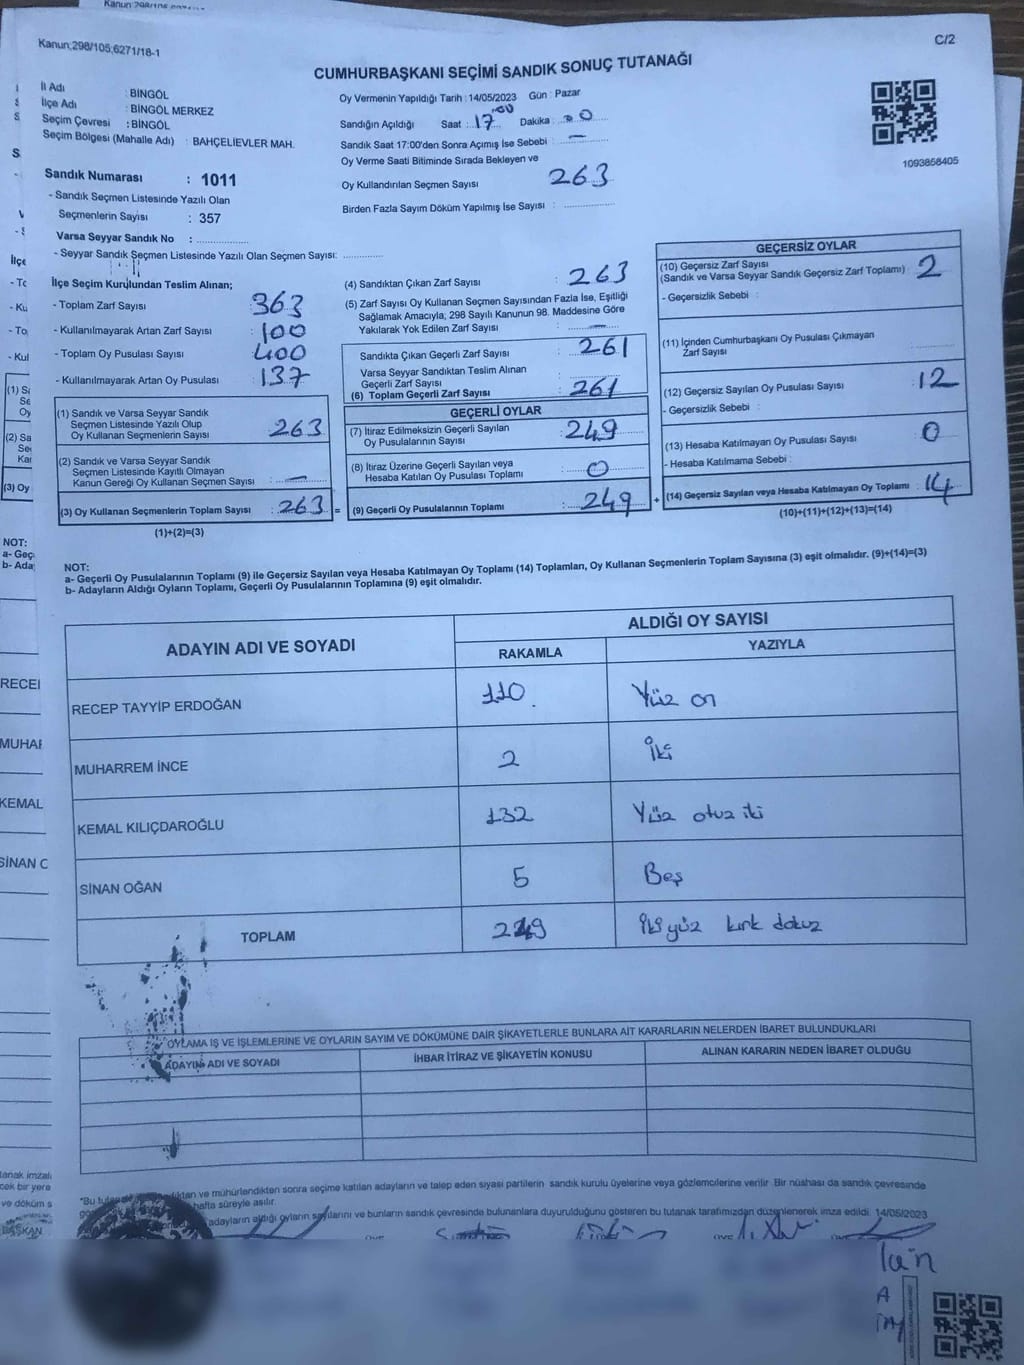 Kanun;298/105;6271/18-1
C/2
CUMHURBAŞKANI SEÇİMİ SANDIK SONUÇ TUTANAĞI
İl Adı : BİNGÖL
İlçe Adı : BİNGÖL MERKEZ
Seçim Çevresi : BİNGÖL
Seçim Bölgesi (Mahalle Adı) : BAHÇELİEVLER MAH.
Sandık Numarası : 1011
- Sandık Seçmen Listesinde Yazılı Olan
Seçmenlerin Sayısı : 357
Varsa Seyyar Sandık No :
- Seyyar Sandık Seçmen Listesinde Yazılı Olan Seçmen Sayısı:
Oy Vermenin Yapıldığı Tarih : 14/05/2023 Gün : Pazar
Sandığın Açıldığı Saat : 17 00 Dakika : 00
Sandık Saat 17:00'den Sonra Açımış İse Sebebi : —
Oy Verme Saati Bitiminde Sırada Bekleyen ve
Oy Kullandırılan Seçmen Sayısı 263
Birden Fazla Sayım Döküm Yapılmış İse Sayısı :
1093858405
İlçe Seçim Kurulundan Teslim Alınan;
- Toplam Zarf Sayısı : 363
- Kullanılmayarak Artan Zarf Sayısı : 100
- Toplam Oy Pusulası Sayısı : 400
- Kullanılmayarak Artan Oy Pusulası : 137
(1) Sandık ve Varsa Seyyar Sandık
Seçmen Listesinde Yazılı Olup
Oy Kullanan Seçmenlerin Sayısı : 263
(2) Sandık ve Varsa Seyyar Sandık
Seçmen Listesinde Kayıtlı Olmayan
Kanun Gereği Oy Kullanan Seçmen Sayısı : —
(3) Oy Kullanan Seçmenlerin Toplam Sayısı : 263 =
(1)+(2)=(3)
(4) Sandıktan Çıkan Zarf Sayısı : 263
(5) Zarf Sayısı Oy Kullanan Seçmen Sayısından Fazla İse, Eşitliği
Sağlamak Amacıyla; 298 Sayılı Kanunun 98. Maddesine Göre
Yakılarak Yok Edilen Zarf Sayısı : —
Sandıkta Çıkan Geçerli Zarf Sayısı : 261
Varsa Seyyar Sandıktan Teslim Alınan
Geçerli Zarf Sayısı :
(6) Toplam Geçerli Zarf Sayısı : 261
GEÇERLİ OYLAR
(7) İtiraz Edilmeksizin Geçerli Sayılan
Oy Pusulalarının Sayısı : 249
(8) İtiraz Üzerine Geçerli Sayılan veya
Hesaba Katılan Oy Pusulası Toplamı : 0
(9) Geçerli Oy Pusulalarının Toplamı : 249 +
GEÇERSİZ OYLAR
(10) Geçersiz Zarf Sayısı
(Sandık ve Varsa Seyyar Sandık Geçersiz Zarf Toplamı) : 2
- Geçersizlik Sebebi :
(11) İçinden Cumhurbaşkanı Oy Pusulası Çıkmayan
Zarf Sayısı :
(12) Geçersiz Sayılan Oy Pusulası Sayısı : 12
- Geçersizlik Sebebi :
(13) Hesaba Katılmayan Oy Pusulası Sayısı : 0
- Hesaba Katılmama Sebebi :
(14) Geçersiz Sayılan veya Hesaba Katılmayan Oy Toplamı : 14
(10)+(11)+(12)+(13)=(14)
NOT:
a- Geçerli Oy Pusulalarının Toplamı (9) ile Geçersiz Sayılan veya Hesaba Katılmayan Oy Toplamı (14) Toplamları, Oy Kullanan Seçmenlerin Toplam Sayısına (3) eşit olmalıdır. (9)+(14)=(3)
b- Adayların Aldığı Oyların Toplamı, Geçerli Oy Pusulalarının Toplamına (9) eşit olmalıdır.
ADAYIN ADI VE SOYADI ALDIĞI OY SAYISI
RAKAMLA YAZIYLA
RECEP TAYYİP ERDOĞAN 110 Yüz on
MUHARREM İNCE 2 İki
KEMAL KILIÇDAROĞLU 132 Yüz otuz iki
SİNAN OĞAN 5 Beş
TOPLAM 249 İki yüz kırk dokuz
OYLAMA İŞ VE İŞLEMLERİNE VE OYLARIN SAYIM VE DÖKÜMÜNE DAİR ŞİKAYETLERLE BUNLARA AİT KARARLARIN NELERDEN İBARET BULUNDUKLARI
ADAYIN ADI VE SOYADI İHBAR İTİRAZ VE ŞİKAYETİN KONUSU ALINAN KARARIN NEDEN İBARET OLDUĞU
"Bu ve mühürlendikten sonra seçime katılan adayların ve talep eden siyasi partilerin sandık kurulu üyelerine veya gözlemcilerine verilir. Bir nüshası da sandık çevresinde
hafta süreyle asılır.
adayların aldığı oyların sayılarını ve bunların sandık çevresinde bulunanlara duyurulduğunu gösteren bu tutanak tarafımızdan düzenlenerek imza edildi. 14/05/2023